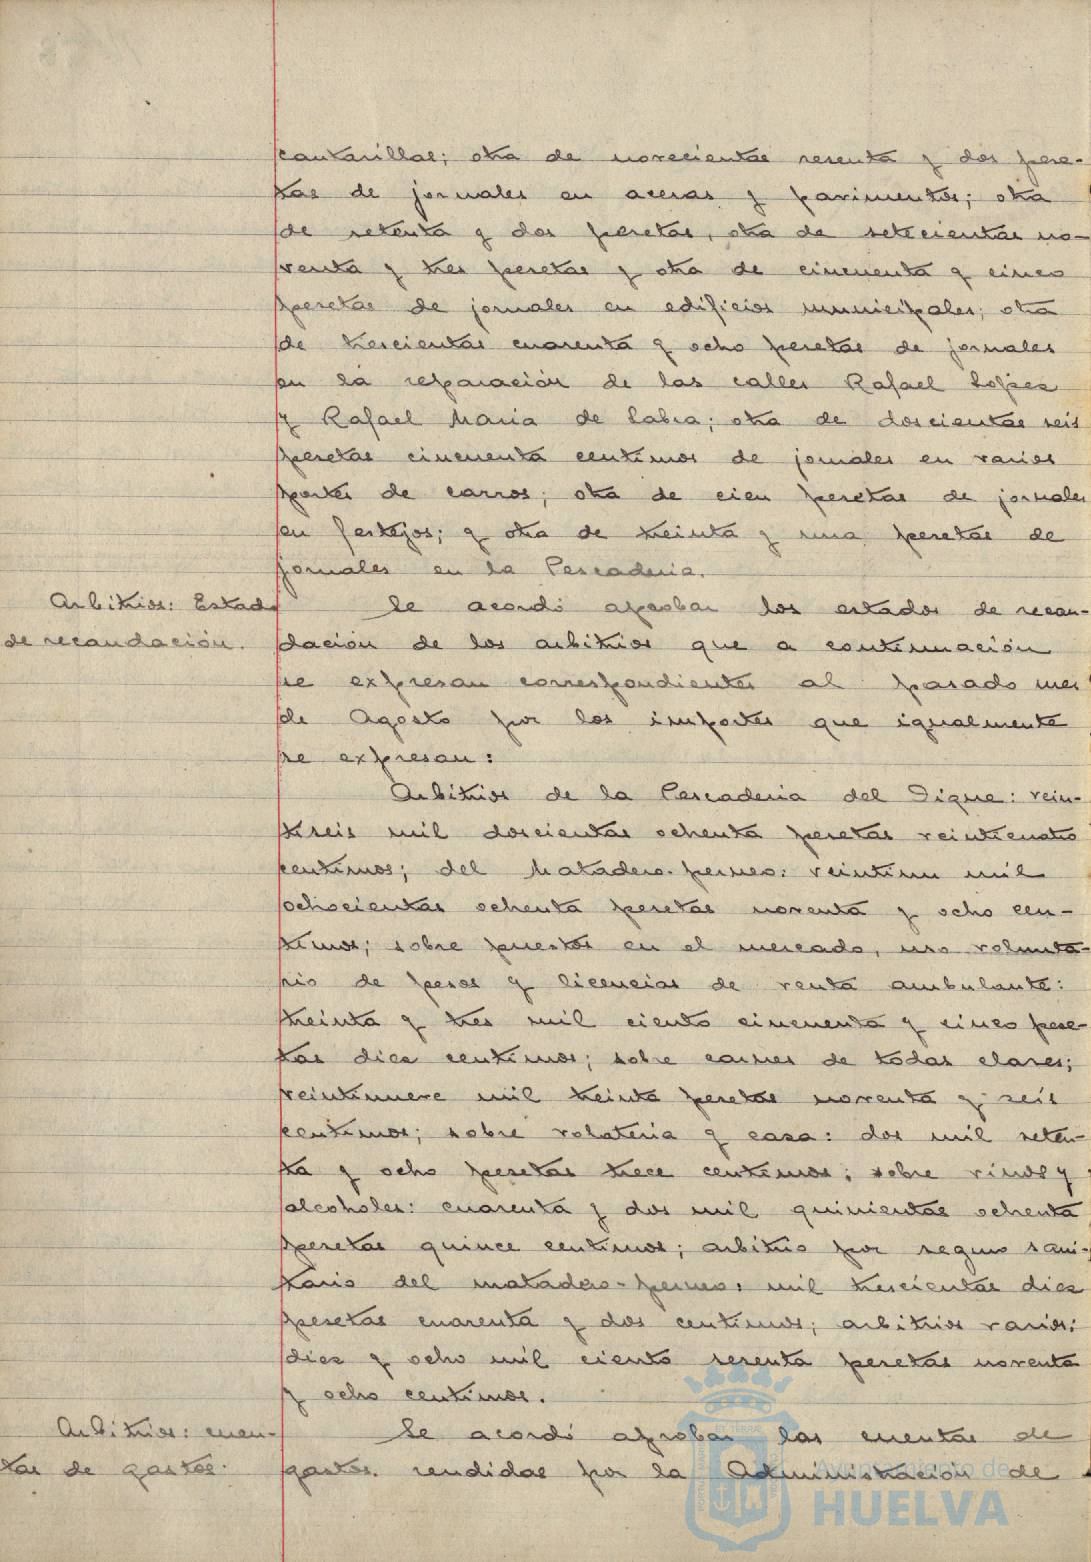 cantarillas; otra de novecientas sesenta y dos pese-
tas de jornales en aceras y pavimentos; otra
de setenta y dos pesetas, otra de setecientas no-
venta y tres pesetas y otra de cincuenta y cinco
pesetas de jornales en edificios municipales; otra
de trescientas cuarenta y ocho pesetas de jornales
en la reparación de las calles Rafael López
y Rafael María de Labra; otra de doscientas seis
pesetas cincuenta centimos de jornales en varios
portes de carros; otra de cien pesetas de jornales
en festejos; y otra de treinta y una pesetas de
jornales en la Pescaderia.
Arbitrios: Estado
de recaudación.
Se acordó aprobar los estados de recau-
dación de los arbitrios que a continuación
se expresan correspondientes al pasado mes
de Agosto por los importes que igualmente
se expresan:
Arbitrios de la Pescaderia del Dique: vein-
tiseis mil doscientas ochenta pesetas veinticuatro
centimos; del Matadero-perneo: veintiun mil
ochocientas ochenta pesetas noventa y ocho cen-
timos; sobre puestos en el mercado, uso volunta-
rio de pesos y licencias de venta ambulante:
treinta y tres mil ciento cincuenta y cinco pese-
tas diez centimos; sobre carnes de todas clases;
veintinueve mil treinta pesetas noventa y seis
centimos; sobre volateria y caza: dos mil seten-
ta y ocho pesetas trece centimos; sobre vinos y
alcoholes: cuarenta y dos mil quinientas ochenta
pesetas quince centimos; arbitrio por seguro sani-
tario del matadero-perneo: mil trescientas diez
pesetas cuarenta y dos centimos; arbitrios varios:
diez y ocho mil ciento sesenta pesetas noventa
y ocho centimos.
Arbitrios: cuen-
tas de gastos.
Se acordó aprobar las cuentas de
gastos rendidas por la Administración de
Ayuntamiento de
HUELVA